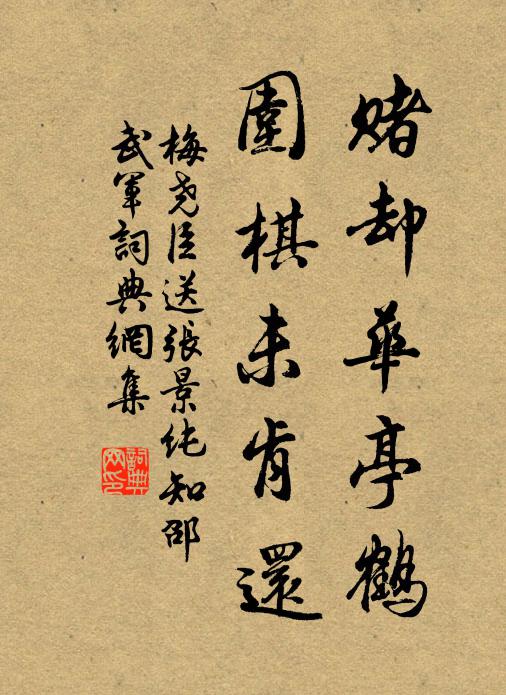 賭却華亭鶴
圍棋未肯還
梅堯臣送張景純知邵
武軍詞典網集
詞典網印